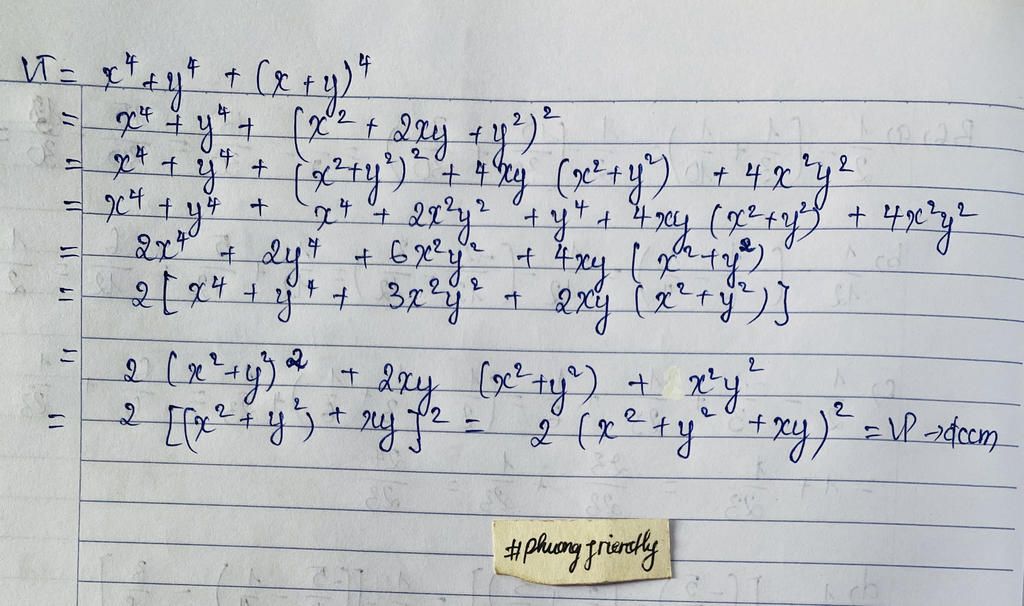 VT = x⁴ + y⁴ + (x + y)⁴
= x⁴ + y⁴ + (x² + 2xy + y²)²
= x⁴ + y⁴ + (x² + y²)² + 4xy (x² + y²) + 4x²y²
= x⁴ + y⁴ + x⁴ + 2x²y² + y⁴ + 4xy (x² + y²) + 4x²y²
= 2x⁴ + 2y⁴ + 6x²y² + 4xy (x² + y²)
= 2 [x⁴ + y⁴ + 3x²y² + 2xy (x² + y²)]
= 2 (x² + y²)² + 2xy (x² + y²) + x²y²
= 2 [(x² + y²) + xy]² = 2 (x² + y² + xy)² = VP → đccm
#phuong friendly